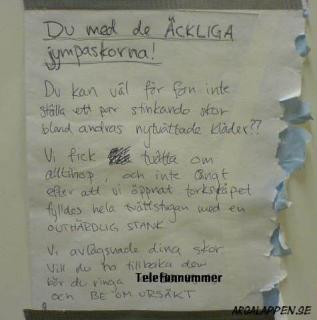 Du med de ÄCKLIGA
jympaskorna!
Du kan väl för fan inte
ställa ett par stinkande skor
bland andras nytvättade kläder??
Vi fick tvätta om
alltihop, och inte långt
efter att vi öppnat torkskåpet
fylldes hela tvättstugan med en
OUTHÄRDLIG STANK.
Vi avlägsnade dina skor
Vill du ha tillbaka dem
bör du ringa Telefonnummer
och BE OM URSÄKT
ARGALAPPEN.SE